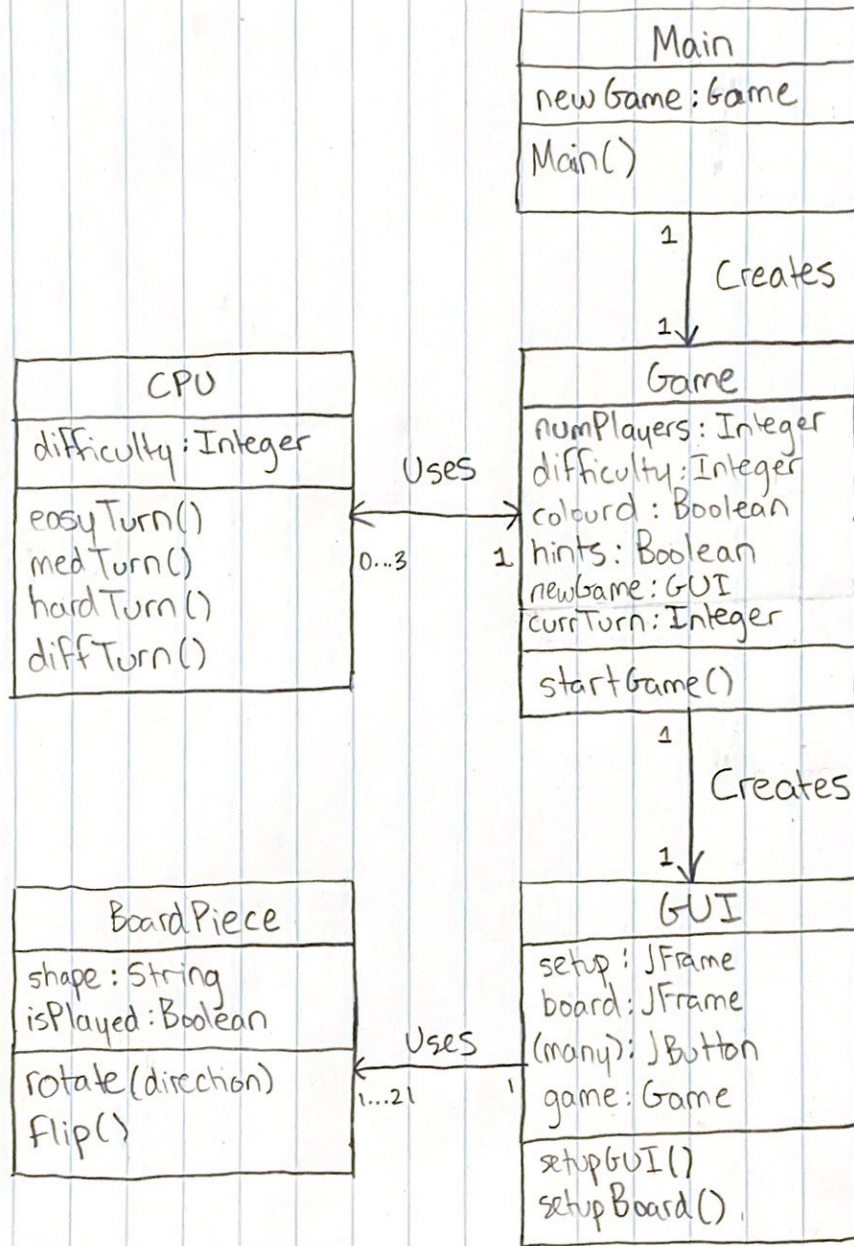 Main
newGame: Game
Main()
1
Creates
1
CPU
difficulty: Integer
easyTurn()
medTurn()
hardTurn()
diffTurn()
Uses
0...3
1
Game
numPlayers: Integer
difficulty: Integer
colourd: Boolean
hints: Boolean
newGame: GUI
currTurn: Integer
startGame()
1
Creates
1
BoardPiece
shape: String
isPlayed: Boolean
rotate(direction)
flip()
Uses
1...21
1
GUI
setup: JFrame
board: JFrame
(many): JButton
game: Game
setupGUI()
setupBoard()